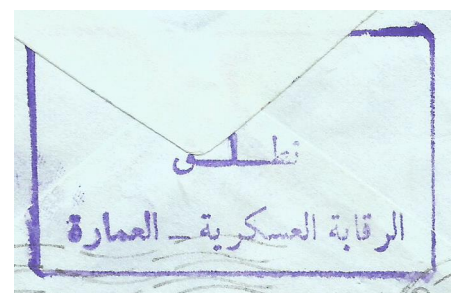 تطلق
الرقابة العسكرية - العمارة